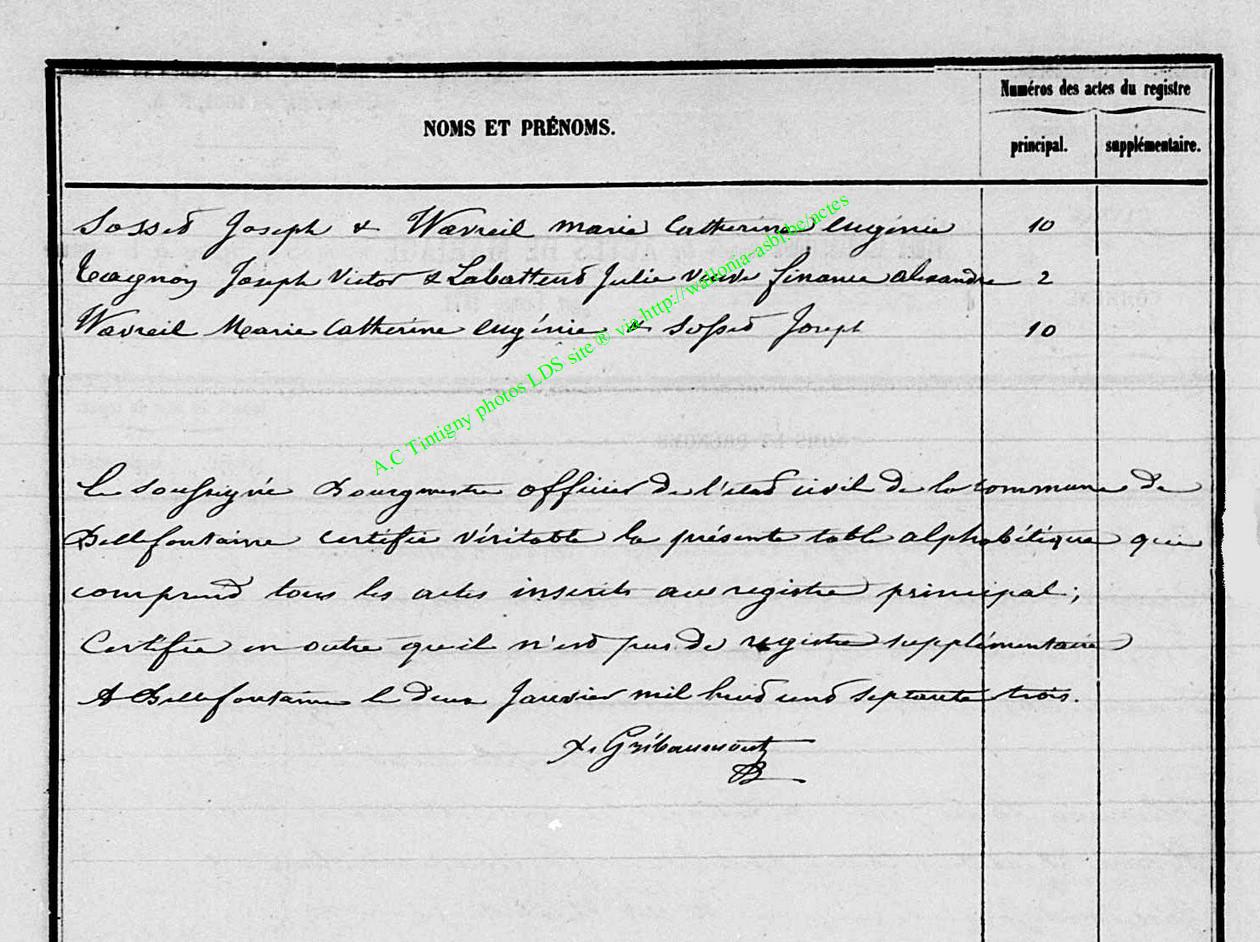 Numéros des actes du registre
NOMS ET PRÉNOMS.
principal. supplémentaire.
Sosset Joseph & Wavreil marie Catherine Eugénie 10
Tagnon Joseph Victor & Labattend Julie veuve finance alexandre 2
Wavreil Marie Catherine Eugénie & Sosset Joseph 10
A.C Tintigny photos LDS site ® via http://wallonia-asbl.be/actes
Le soussigné Bourgmestre officier de l'état civil de la commune de
Bellefontaine certifie véritable la présente table alphabétique qui
comprend tous les actes inscrits au registre principal;
Certifie en outre qu'il n'est pas de registre supplémentaire
A Bellefontaine le deux Janvier mil huit cent septante trois.
Gribaumont